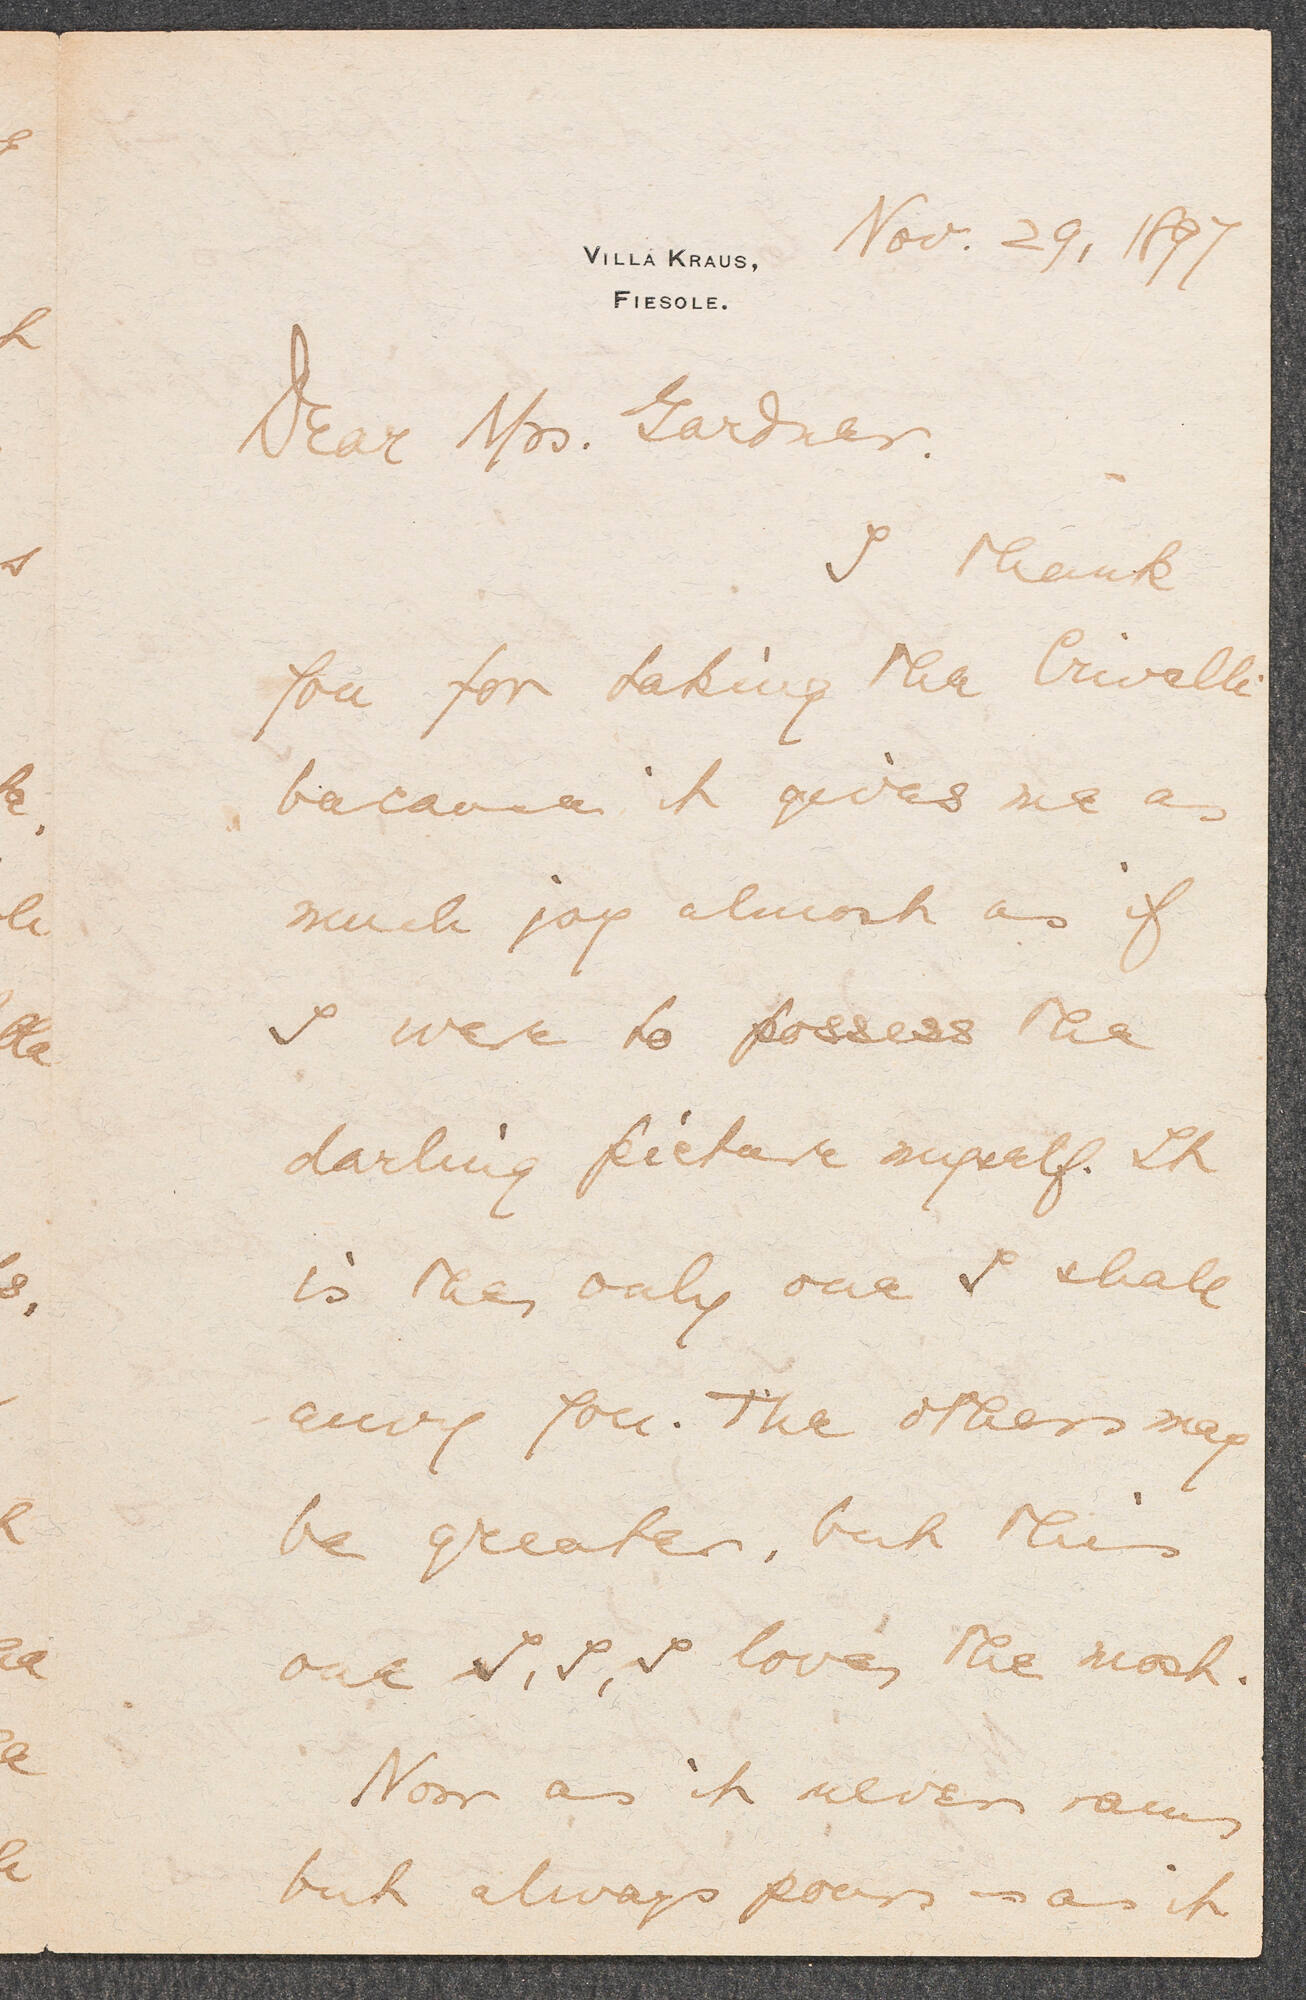 Nov. 29, 1897
VILLA KRAUS,
FIESOLE.
Dear Mrs. Gardner.
I thank
you for taking the Crivelli
because it gives me as
much joy almost as if
I were to possess the
darling picture myself. It
is the only one I shall
envy you. The others may
be greater, but this
one I, I, I love, the most.
Now as it never rains
but always pours – as it